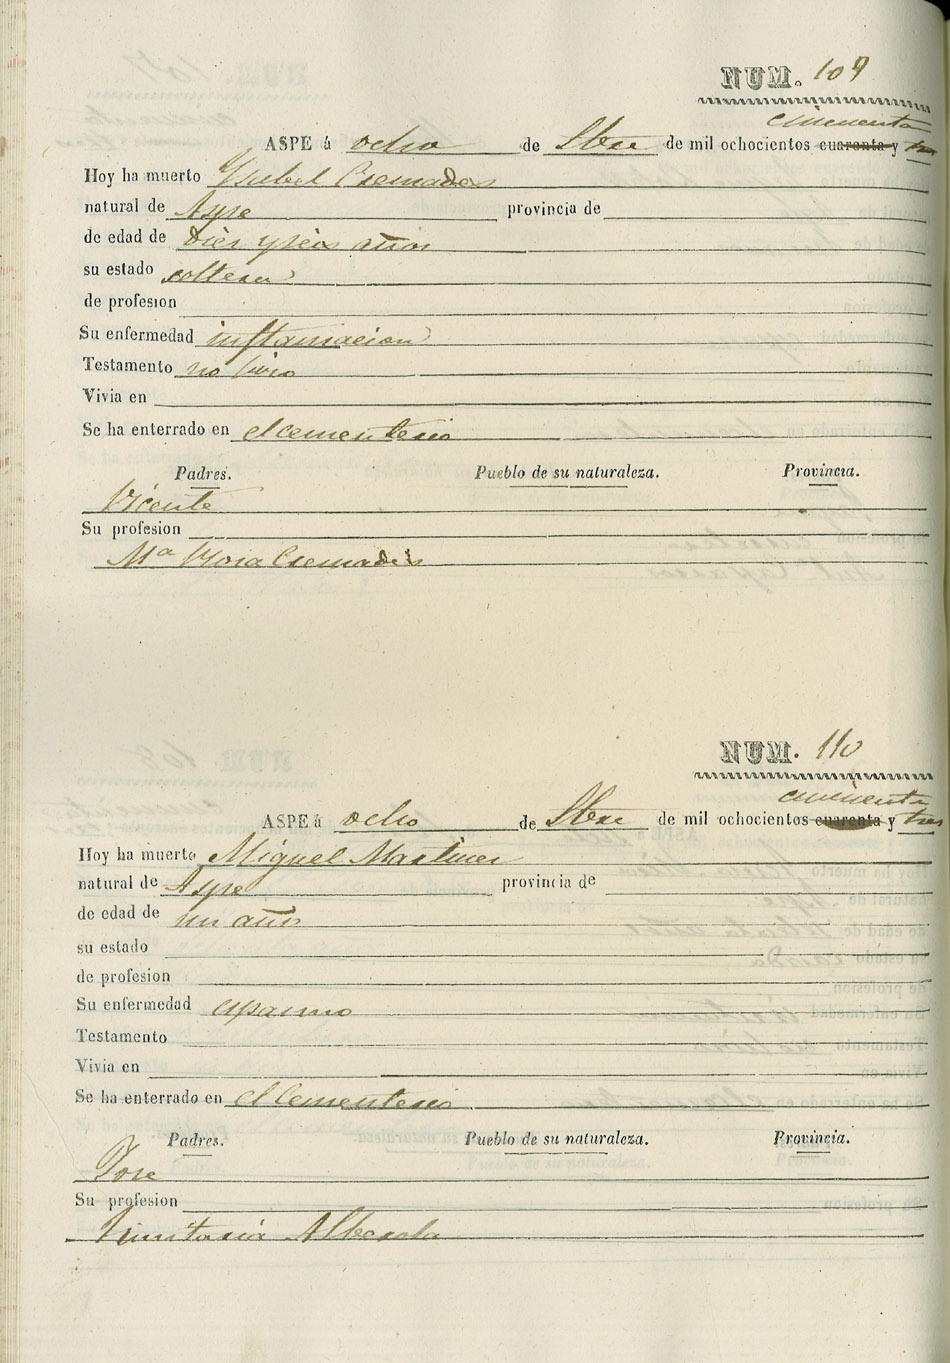 NUM. 109
cincuenta
ASPE á ocho de Sbre de mil ochocientos cuarenta y
Hoy ha muerto Ysabel Cremades
natural de Aspe provincia de
de edad de diez y seis años
su estado soltera
de profesion
Su enfermedad inflamacion
Testamento no hizo
Vivia en
Se ha enterrado en el cementerio
Padres. Pueblo de su naturaleza. Provincia.
Vicente
Su profesion
Mª Rosa Cremades
NUM. 110
cincuenta
ASPE á ocho de Sbre de mil ochocientos cuarenta y tres
Hoy ha muerto Miguel Martinez
natural de Aspe provincia de
de edad de un año
su estado
de profesion
Su enfermedad espasmo
Testamento
Vivia en
Se ha enterrado en el Cementerio
Padres. Pueblo de su naturaleza. Provincia.
Jose
Su profesion
Alberola